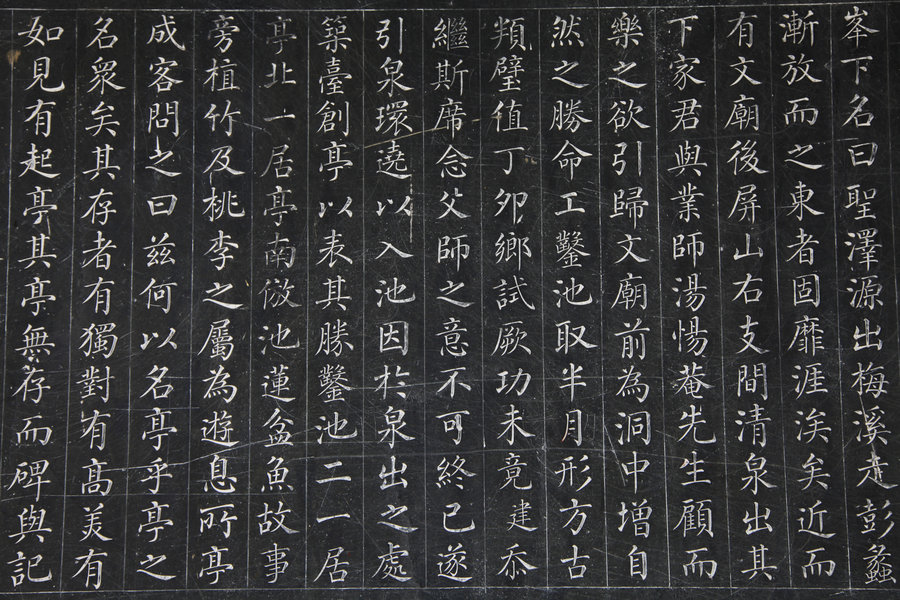 峯下名曰聖澤源出梅溪走彭蠡
漸放而之東者固靡涯涘矣近而
有文廟後屏山右支間清泉出其
下家君與業師湯惕菴先生顧而
樂之欲引歸文廟前為洞中增自
然之勝命工鑿池取半月形方古
頖璧值丁夘鄉試厥功未竟建忝
繼斯席念父師之意不可終已遂
引泉環遶以入池因於泉出之處
築臺創亭以表其勝鑿池二一居
亭北一居亭南倣池蓮盆魚故事
旁植竹及桃李之屬為遊息所亭
成客問之曰兹何以名亭乎亭之
名衆矣其存者有獨對有高美有
如見有起亭其亭無存而碑與記